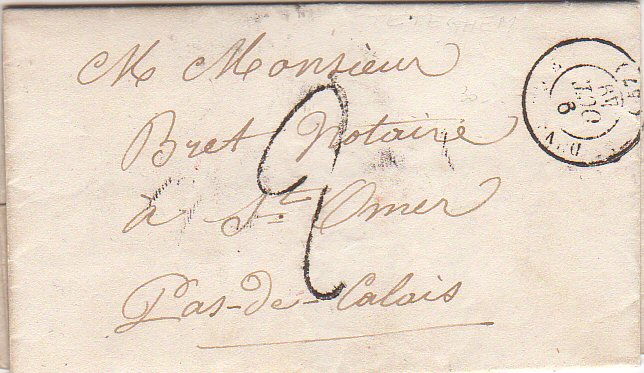 M Monsieur
Bret Notaire
à St. Omer
Pas-de-Calais
2
8
OCT.
49
(57)